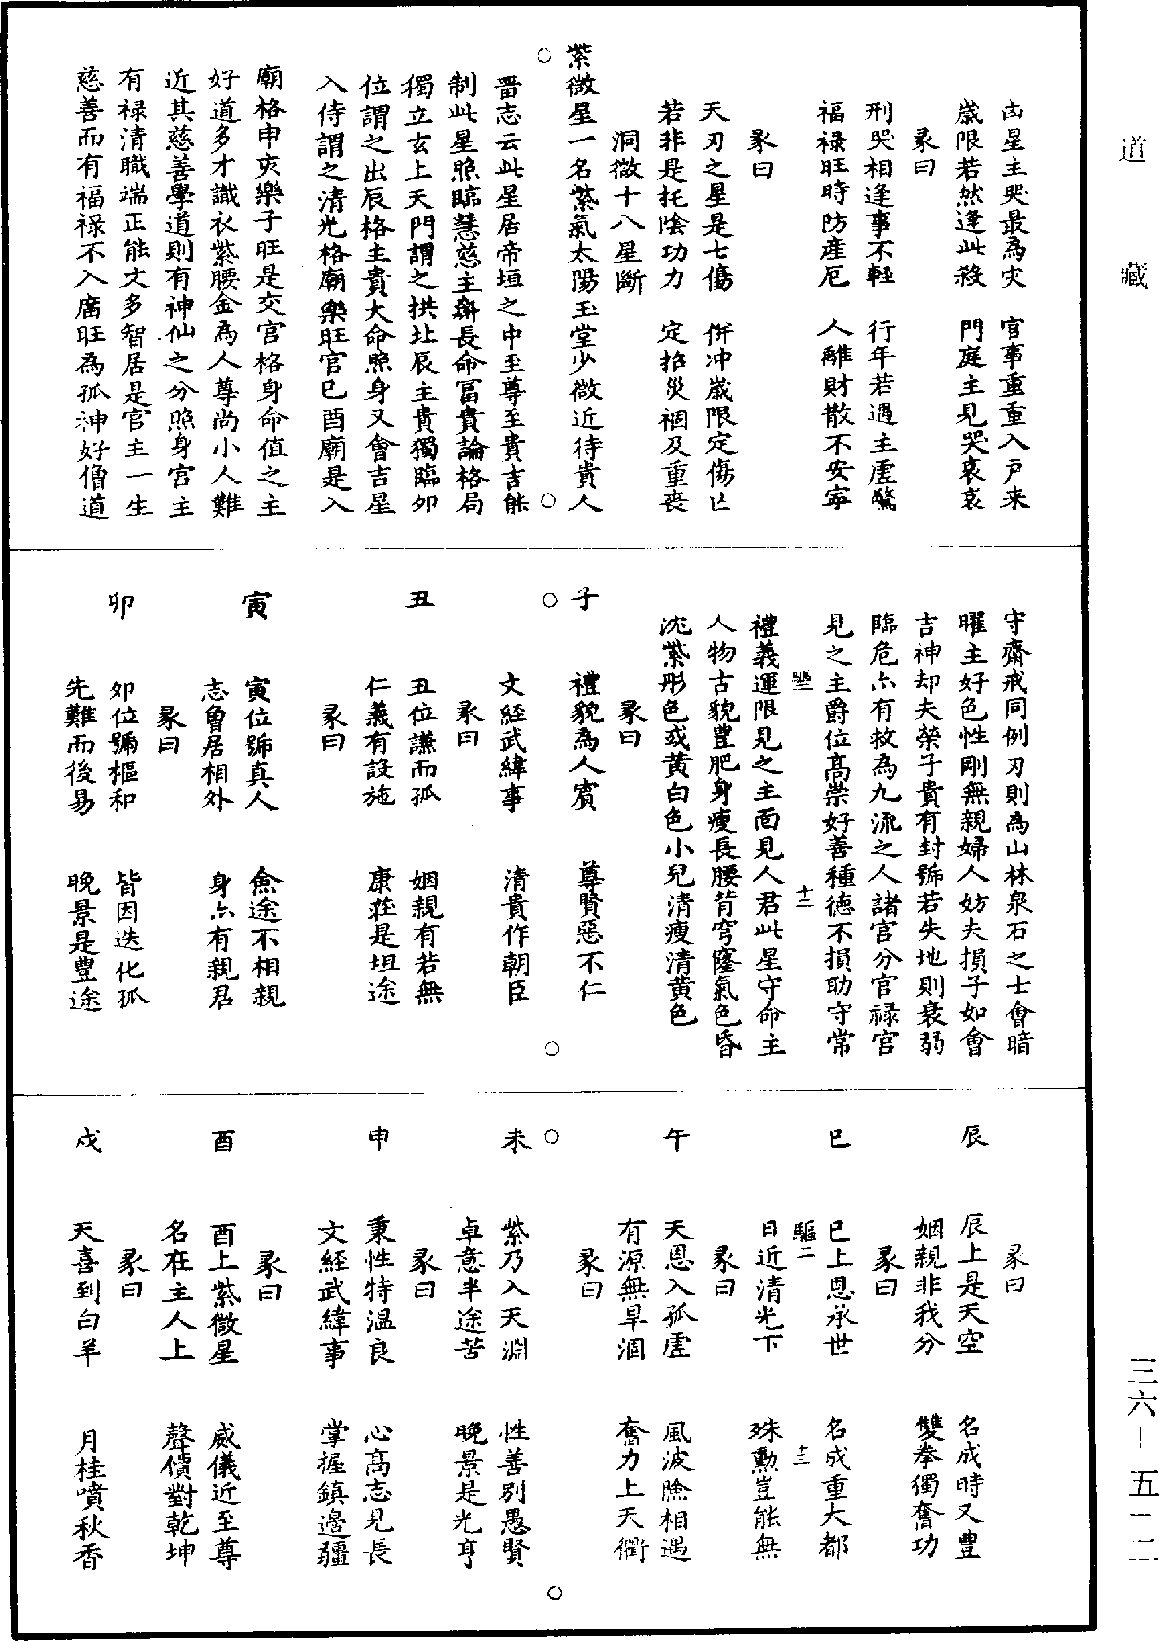 道藏
凶星主哭最為灾　官事重重入戶来
歲限若然逢此殺　門庭主見哭哀哀
彖曰
刑哭相逢事不輕　行年若遇主虛驚
福祿旺時防產厄　人離財散不安寧
彖曰
天刃之星是七傷　併冲歲限定傷亡
若非是托陰功力　定招災禍及重喪
洞微十八星斷
紫微星一名紫氣太陽玉堂少微近待貴人
晋志云此星居帝垣之中至尊至貴吉能
制此星照臨慧慈主壽長命富貴論格局
獨立玄上天門謂之拱北辰主貴獨臨卯
位謂之出辰格主貴大命照身又會吉星
入侍謂之清光格廟樂旺宫巳酉廟是入
廟格申亥樂子旺是交宫格身命值之主
好道多才識衣紫腰金為人尊尚小人難
近其慈善學道則有神仙之分照身宫主
有禄清職端正能文多智居是官主一生
慈善而有福禄不入廟旺為孤神好僧道
守齋戒同例刃則為山林泉石之士會暗
曜主好色性剛無親婦人妨夫損子如會
吉神却夫榮子貴有封號若失地則衰弱
臨危亦有救為九流之人諸官分官禄宫
見之主爵位高崇好善種德不損助守常
禮義運限見之主面見人君此星守命主
人物古貌豐肥身瘦長腰背穹窿氣色昏
沈紫彤色或黄白色小兒清瘦清黄色
彖曰
子　禮貌為人賓　尊賢惡不仁
文經武緯事　清貴作朝臣
彖曰
丑　丑位謙而孤　姻親有若無
仁義有設施　康莊是坦途
彖曰
寅　寅位號真人　僉途不相親
志魯居相外　身亦有親君
彖曰
卯　卯位號樞和　皆因迭化孤
先難而後易　晚景是豊途
彖曰
辰　辰上是天空　名成時又豊
姻親非我分　雙拳獨奮功
彖曰
巳　巳上恩承世　名成重大都
驅二　十三
日近清光下　殊勳豈能無
彖曰
午　天恩入孤虛　風波險相遇
有源無旱涸　奮力上天衢
彖曰
未　紫乃入天淵　性善别愚賢
卓意半途苦　晚景是光亨
彖曰
申　秉性特温良　心高志見長
文經武緯事　掌握鎮邊疆
彖曰
酉　酉上紫微星　威儀近至尊
名在主人上　聲價對乾坤
彖曰
戌　天喜到白羊　月桂噴秋香
三六—五一二